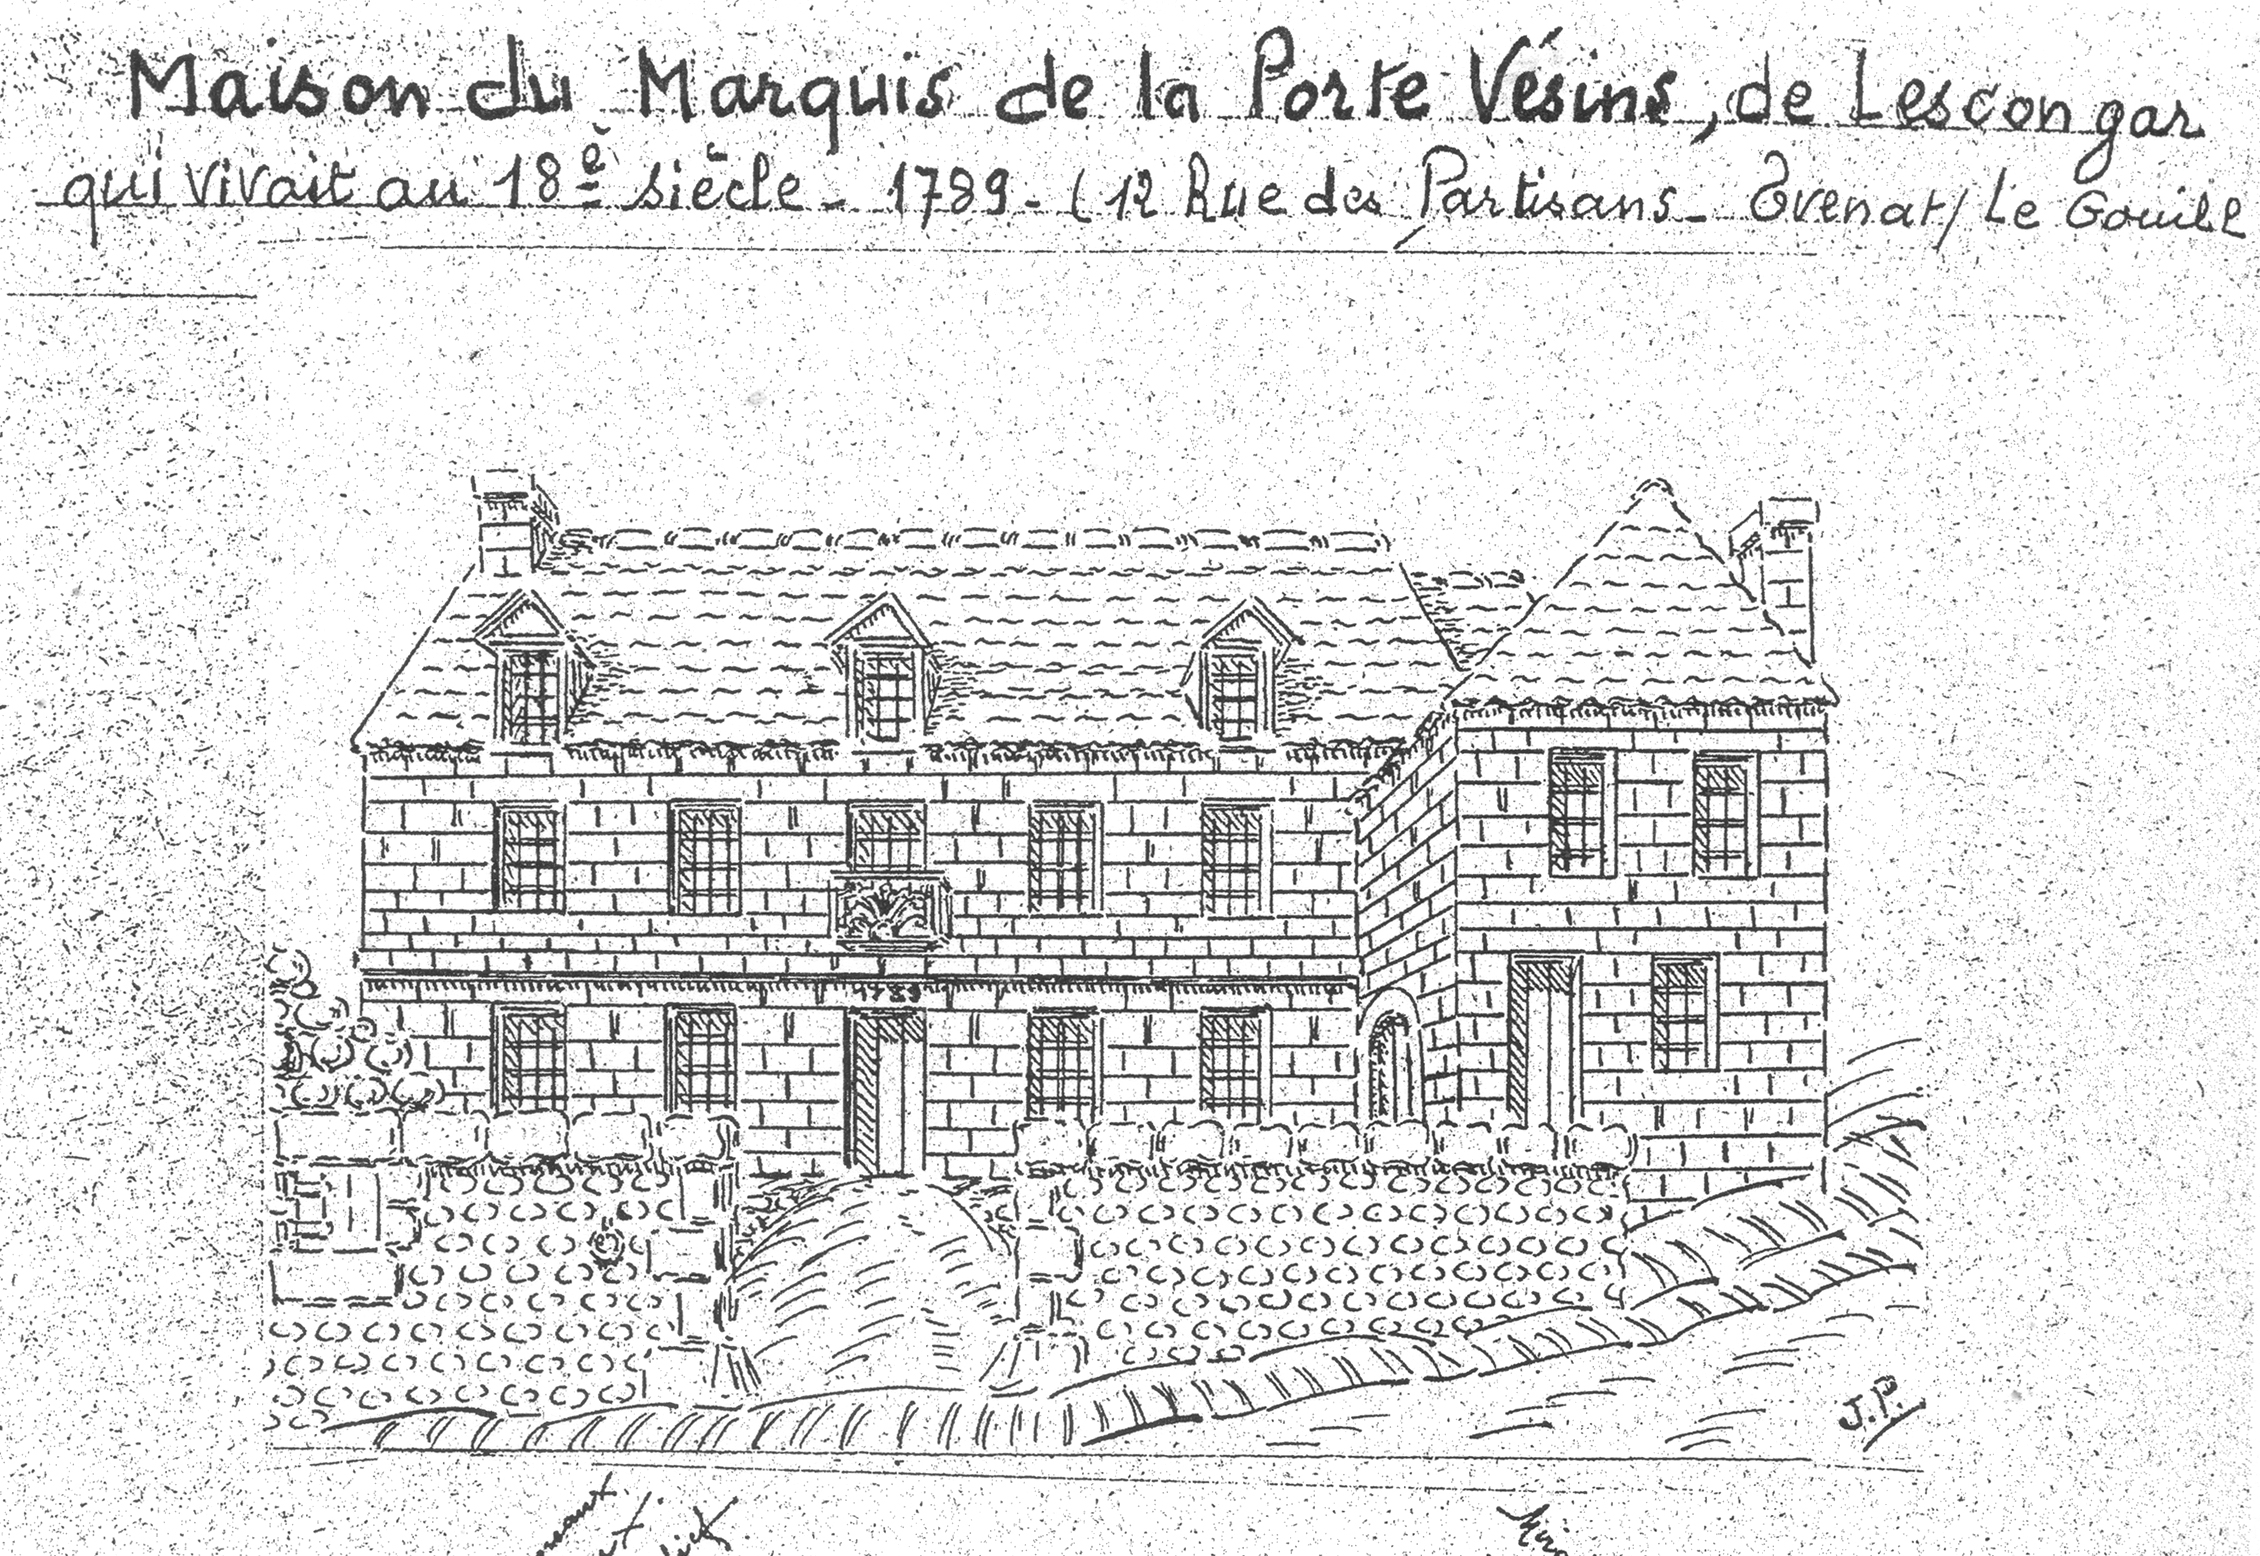 Maison du Marquis de la Porte Vésins, de Lescongar
qui vivait au 18e siècle - 1789 - (12 Rue des Partisans - Evenat / Le Gouill
1789
J.P.